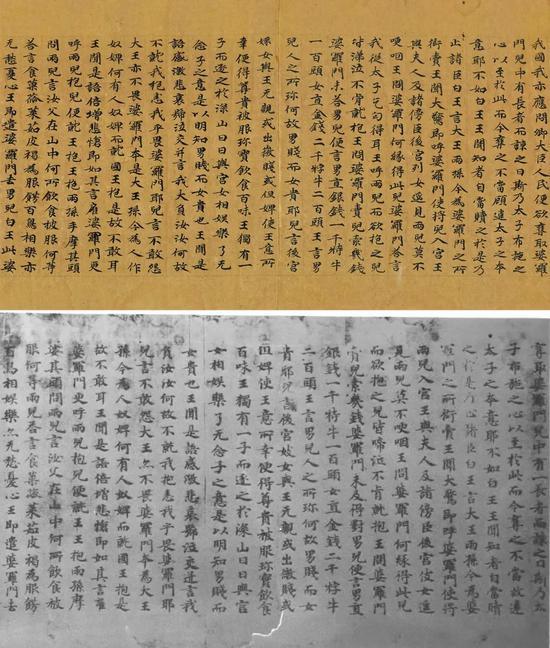 我國我亦應問卿大臣人民便欲尊取婆羅
門兒中有長者而諫之曰斯乃太子布施之
心以至於此而今奪之不當顧違太子之本
意耶不如白王王聞知者自當贖之於是乃
止諸臣白王言大王兩孫今為婆羅門之所
衒賣王聞大驚即呼婆羅門使持兒入宮王
與夫人及諸傍臣後宮列女遙見兩兒莫不
哽咽王問婆羅門何緣得此兒婆羅門答言
我從太子乞匃得耳王呼兩兒而欲抱之兒
皆涕泣不肯就王問婆羅門賣兒索幾錢
婆羅門未答男兒便言男直銀錢一千牸牛
一百頭女直金錢二千牸牛二百頭王言男
兒人之所珎何故男賤而女貴耶兒言後宮
婇女與王无親或出微賤或但婢使王意所
幸便得尊貴被服珎寶飲食百味王獨有一
子而逐之於深山日日與宮女相娛樂了无
念子之意是以明知男賤而女貴也王聞是
語感激悲哀泣交并言我大負汝汝何故
不就我抱恚我乎畏婆羅門耶兒言不敢怨
大王亦不畏婆羅門本是大王孫今為人作
奴婢何有人奴婢而就國王抱是故不敢耳
王聞是語倍增悲愴即如其言雇婆羅門更
呼兩兒抱兒便就王抱王抱兩孫手摩其頭
問兩兒言汝父在山中何所飲食被服何等
答言食菓蓏菜茹皮褐為服餝百鳥相樂亦
无愁憂心王即遣婆羅門去男兒白王此婆
奪取婆羅門兒中有一長者而諫之曰斯乃太
子布施之心以至於此而今奪之不當故違
太子之本意耶不如白王王聞知者自當贖
之於是乃心諸臣白王言大王兩孫今為婆
羅門之所衒賣王聞大驚即呼婆羅門使得
兩兒入宮王與夫人及諸傍臣後宮女遥
見兩兒莫不哽咽王問婆羅門何緣得此兒
而欲抱之兒皆啼泣不肯就抱王問婆羅門
賣兒索幾錢婆羅門未及得對男兒便言男直
銀錢一千牸牛一百頭女直金錢二千牸牛
二百頭王言男兒人之所珎何故男賤而女
貴耶兒言後宮婇女與王无親或出微賤或
但婢使王意所幸便得尊貴被服珎寶飲食
百味王獨有一子而逐之於深山日日與宮
女相娛樂了无念子之意是以明知男賤而
女貴也王聞是語感激悲哀泣交迸言我
負汝汝何故不就我抱恚我乎畏婆羅門耶
兒言不敢怨大王然不畏婆羅門本為大王
孫今為人奴婢何有人奴婢而就國王抱是
故不敢耳王聞是語倍增悲愴即如其言雇
婆羅門更呼兩兒抱兒便就王抱王抱兩孫摩
娑其頭問兩兒言汝父在山中何所飲食被
服何等兩兒答言食菓蓏菜茹皮褐為服餝
百鳥相娛樂然无愁憂心王即遣婆羅門去